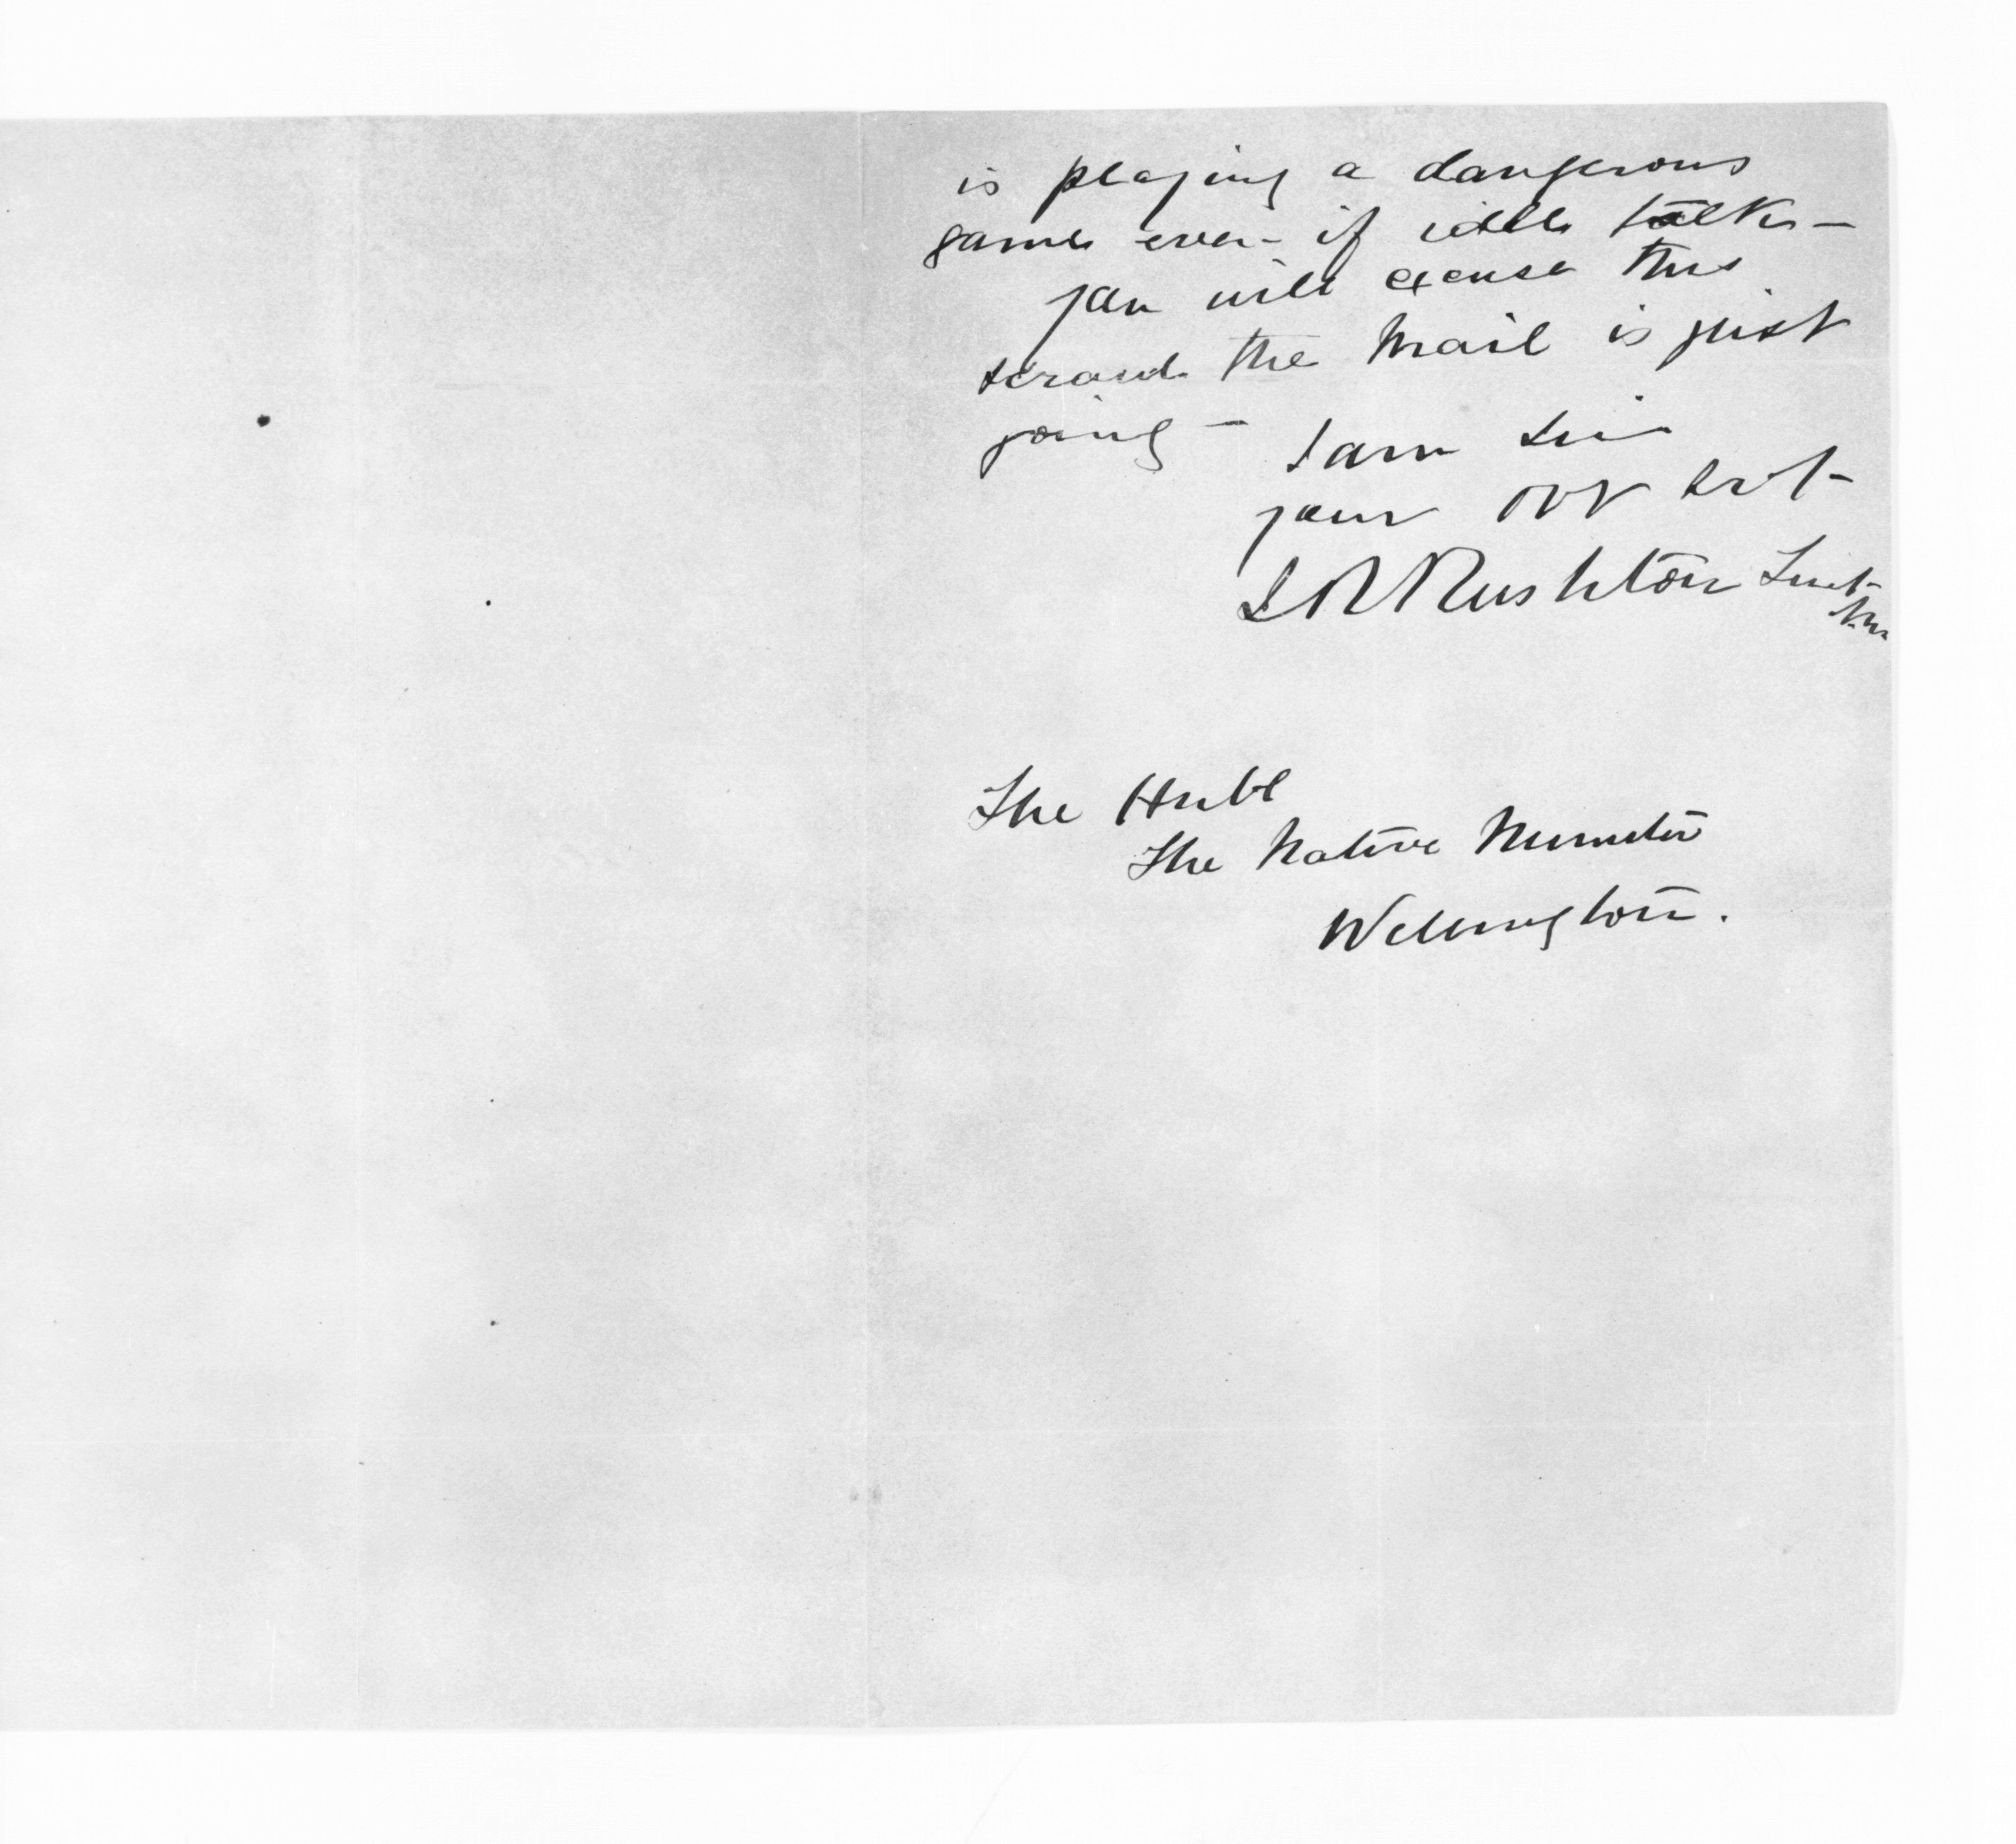 is playing a dangerous
game even if idle talk —
you will excuse this
scrawl the mail is just
going —
I am Sir
your obt Svt
Rushton Lieut
The Honble
The Native Minister
Wellington.